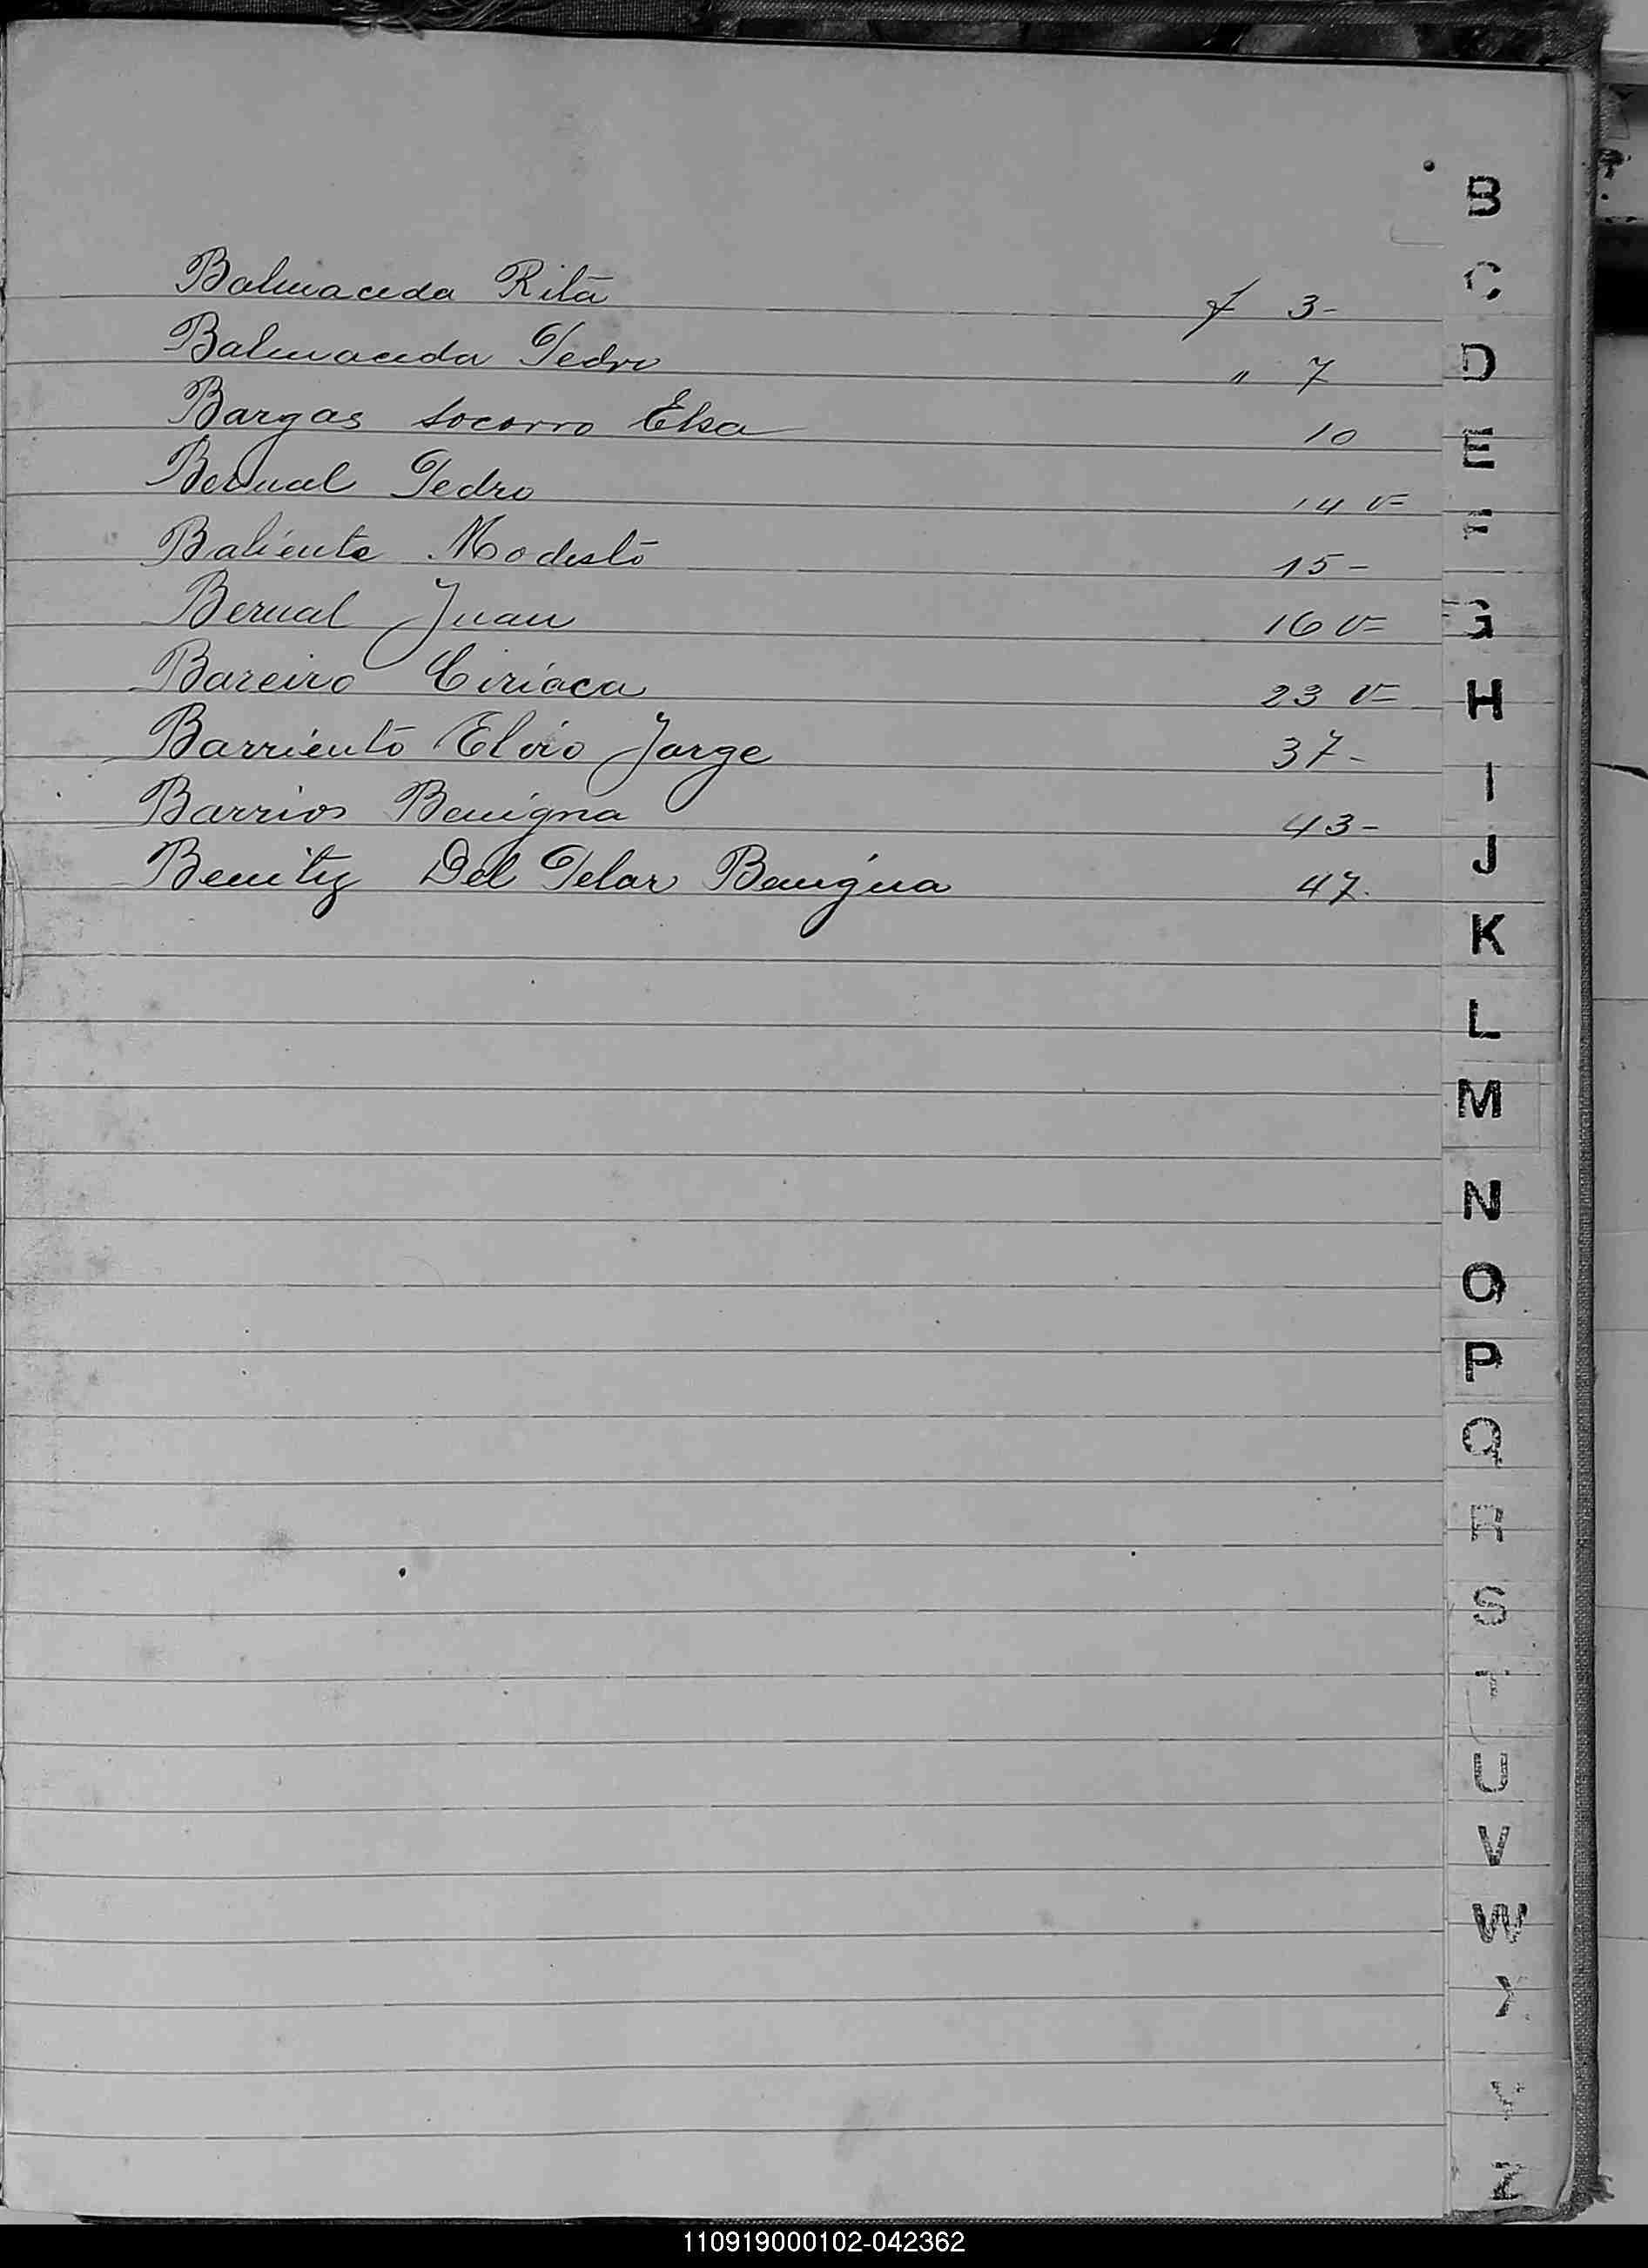 B
C
Balmaceda Rita f 3-
D
Balmaceda Pedro " 7
Bargas Socorro Elsa 10
E
Bernal Pedro 14 v-
F
Baliente Modesto 15-
Bernal Juan 16 v-
G
Bareiro Ciriaca 23 v-
H
Barriento Elvio Jorge 37-
I
Barrios Benigna 43-
J
Benitez Del Pelar Benigna 47.
K
L
M
N
O
P
Q
R
S
T
U
V
W
X
Y
Z
110919000102-042362